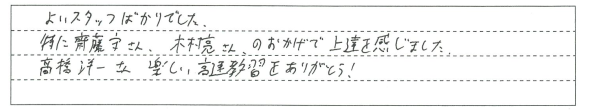 よいスタッフばかりでした、
特に齊藤守さん、木村亮さん、のおかげで上達を感じました。
高橋洋一さん 楽しい高速教習をありがとう!